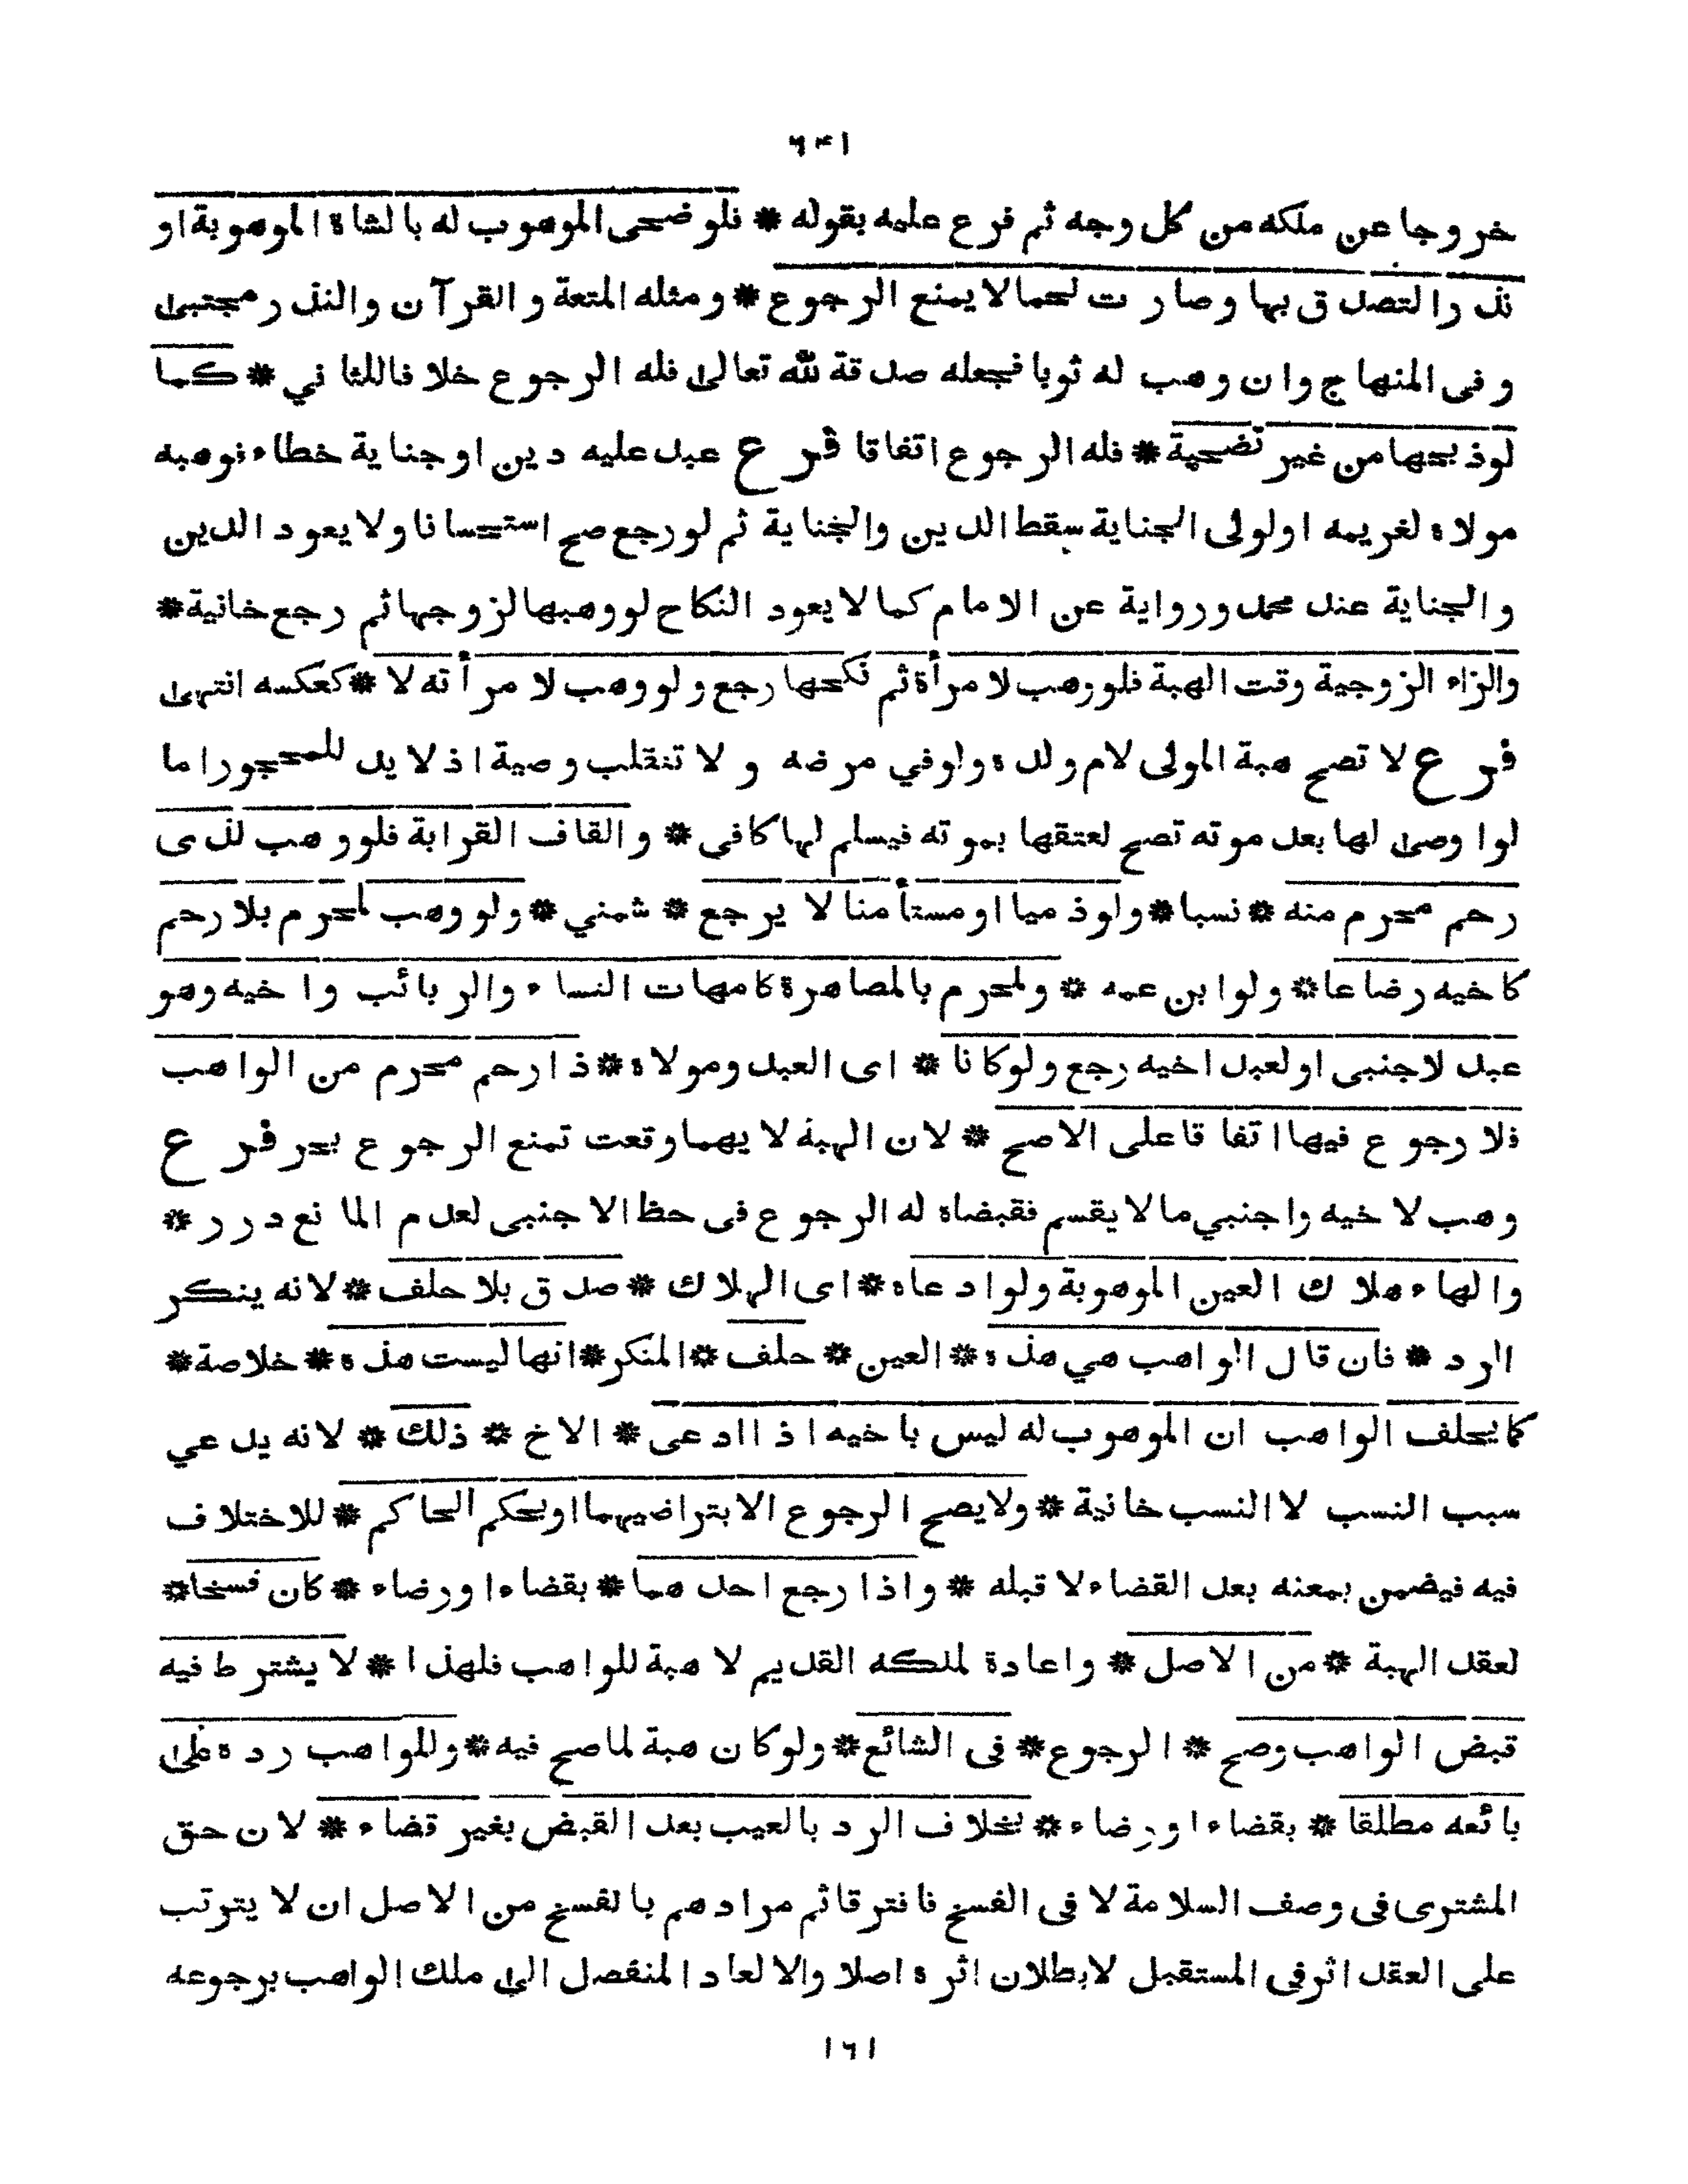 ٦٤١
خروجا عن ملكه من كل وجه ثم فرع عليه بقوله * فلو ضحى الموهوب له بالشاة الموهوبة او
نذر التصدق بها وصارت لحما لا يمنع الرجوع * ومثله المتعة والقرآن والنذر مجتبى
وفى المنهاج وان وهب له ثوبا فجعله صدقة لله تعالى فله الرجوع خلافا للثاني * كما
لو ذبحها من غير تضحية * فله الرجوع اتفاقا فرع عبد عليه دين او جناية خطاء فوهبه
مولاه لغريمه او لولى الجناية سقط الدين والجناية ثم لو رجع صح استحسانا ولا يعود الدين
والجناية عند محمد ورواية عن الامام كما لا يعود النكاح لو وهبها لزوجها ثم رجع خانية *
والزاء الزوجية وقت الهبة فلو وهب لامرأة ثم نكحها رجع ولو وهب لامرأته لا * كعكسه انتهى
فرع لا تصح هبة المولى لام ولده ولو في مرضه ولا تنقلب وصية اذ لا يد للمحجور اما
لو اوصى لها بعد موته تصح لعتقها بموته فيسلم لها كافى * والقاف القرابة فلو وهب لذى
رحم محرم منه * نسبا * ولو ذميا او مستأمنا لا يرجع * شمني * ولو وهب لمحرم بلا رحم
كاخيه رضاعا * ولو ابن عمه * ولمحرم بالمصاهرة كامهات النساء والربائب واخيه وهو
عبد لاجنبى او لعبد اخيه رجع ولو كانا * اى العبد ومولاه * ذا رحم محرم من الواهب
فلا رجوع فيها اتفاقا على الاصح * لان الهبة لايهما وقعت تمنع الرجوع بحر فرع
وهب لاخيه واجنبي ما لا يقسم فقبضاه له الرجوع فى حظ الاجنبى لعدم المانع درر *
والهاء هلاك العين الموهوبة ولو ادعاه * اى الهلاك * صدق بلا حلف * لانه ينكر
الرد * فان قال الواهب هي هذه * العين * حلف * المنكر * انها ليست هذه * خلاصة *
كما يحلف الواهب ان الموهوب له ليس باخيه اذا ادعى * الاخ * ذلك * لانه يدعي
سبب النسب لا النسب خانية * ولا يصح الرجوع الا بتراضيهما او بحكم الحاكم * للاختلاف
فيه فيضمن بمعنه بعد القضاء لا قبله * واذا رجع احدهما * بقضاء او رضاء * كان فسخا *
لعقد الهبة * من الاصل * واعادة لملكه القديم لا هبة للواهب فلهذا * لا يشترط فيه
قبض الواهب وصح * الرجوع * فى الشائع * ولو كان هبة لما صح فيه * وللواهب رده على
بائعه مطلقا * بقضاء او رضاء * بخلاف الرد بالعيب بعد القبض بغير قضاء * لان حق
المشترى فى وصف السلامة لا فى الفسخ فافترقا ثم مرادهم بالفسخ من الاصل ان لا يترتب
على العقد اثر فى المستقبل لا بطلان اثره اصلا والا لعاد المنفصل الى ملك الواهب برجوعه
١٦١